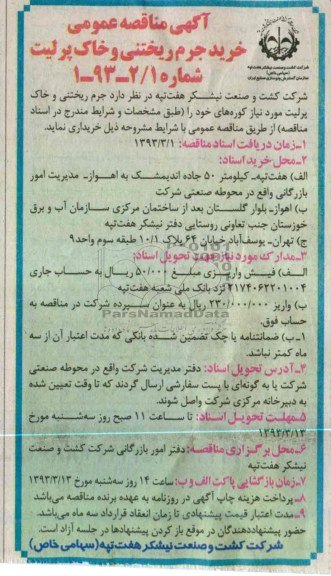 آگهی مناقصه عمومی
خرید جرم ریختنی و خاک پرلیت
شماره ۲/۱-۹۳-۱
شرکت کشت و صنعت نیشکر هفت‌تپه
(سهامی خاص)
شرکت کشت و صنعت نیشکر هفت‌تپه در نظر دارد جرم ریختنی و خاک
پرلیت مورد نیاز کوره‌های خود را (طبق مشخصات و شرایط مندرج در اسناد
مناقصه) از طریق مناقصه عمومی با شرایط مشروحه ذیل خریداری نماید.
۱-زمان دریافت اسناد مناقصه: ۱۳۹۳/۳/۱
۲-محل خرید اسناد:
الف) هفت‌تپه- کیلومتر ۵۰ جاده اندیمشک به اهواز- مدیریت امور
بازرگانی واقع در محوطه صنعتی شرکت
ب) اهواز- بلوار گلستان بعد از ساختمان مرکزی سازمان آب و برق
خوزستان جنب تعاونی روستایی دفتر نیشکر هفت‌تپه
ج) تهران- یوسف‌آباد خیابان ۶۴ پلاک ۱۰/۱ طبقه سوم واحد ۹
۳-مدارک مورد نیاز جهت تحویل اسناد:
الف) فیش واریزی مبلغ ۵۰/۰۰۰ ریال به حساب جاری
۲۱۷۴۰۶۲۲۰۱۰۰۴ نزد بانک ملی شعبه هفت‌تپه
ب) واریز ۲۳۰/۰۰۰/۰۰۰ ریال به عنوان سپرده شرکت در مناقصه به
حساب فوق.
۱-ب) ضمانتنامه یا چک تضمین شده بانکی که مدت اعتبار آن از سه
ماه کمتر نباشد.
۴-آدرس تحویل اسناد: دفتر مدیریت شرکت واقع در محوطه صنعتی
شرکت یا به گونه‌ای با پست سفارشی ارسال گردند که تا وقت تعیین شده
به دبیرخانه مرکزی شرکت واصل شوند.
۵-مهلت تحویل اسناد: تا ساعت ۱۱ صبح روز سه‌شنبه مورخ
۱۳۹۳/۳/۱۳
۶-محل برگزاری مناقصه: دفتر امور بازرگانی شرکت کشت و صنعت
نیشکر هفت‌تپه
۷-زمان بازگشایی پاکت الف و ب: ساعت ۱۴ روز سه‌شنبه مورخ ۱۳۹۳/۳/۱۳
۸-پرداخت هزینه چاپ آگهی در روزنامه به عهده برنده مناقصه می‌باشد
۹-مدت اعتبار قیمت پیشنهادی تا زمان انعقاد قرارداد سه ماه می‌باشد.
حضور پیشنهاددهندگان در موقع باز کردن پیشنهادها در جلسه آزاد است.
شرکت کشت و صنعت نیشکر هفت تپه (سهامی خاص)
ParsNamadData